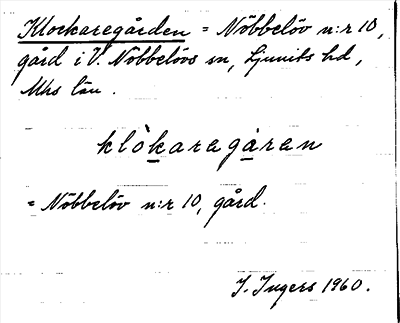 Klockaregården = Nöbbelöv n:r 10,
gård i V. Nöbbelövs sn, Ljunits hd,
Mhs län.
klòkaregåren
= Nöbbelöv n:r 10, gård.
I. Ingers 1960.